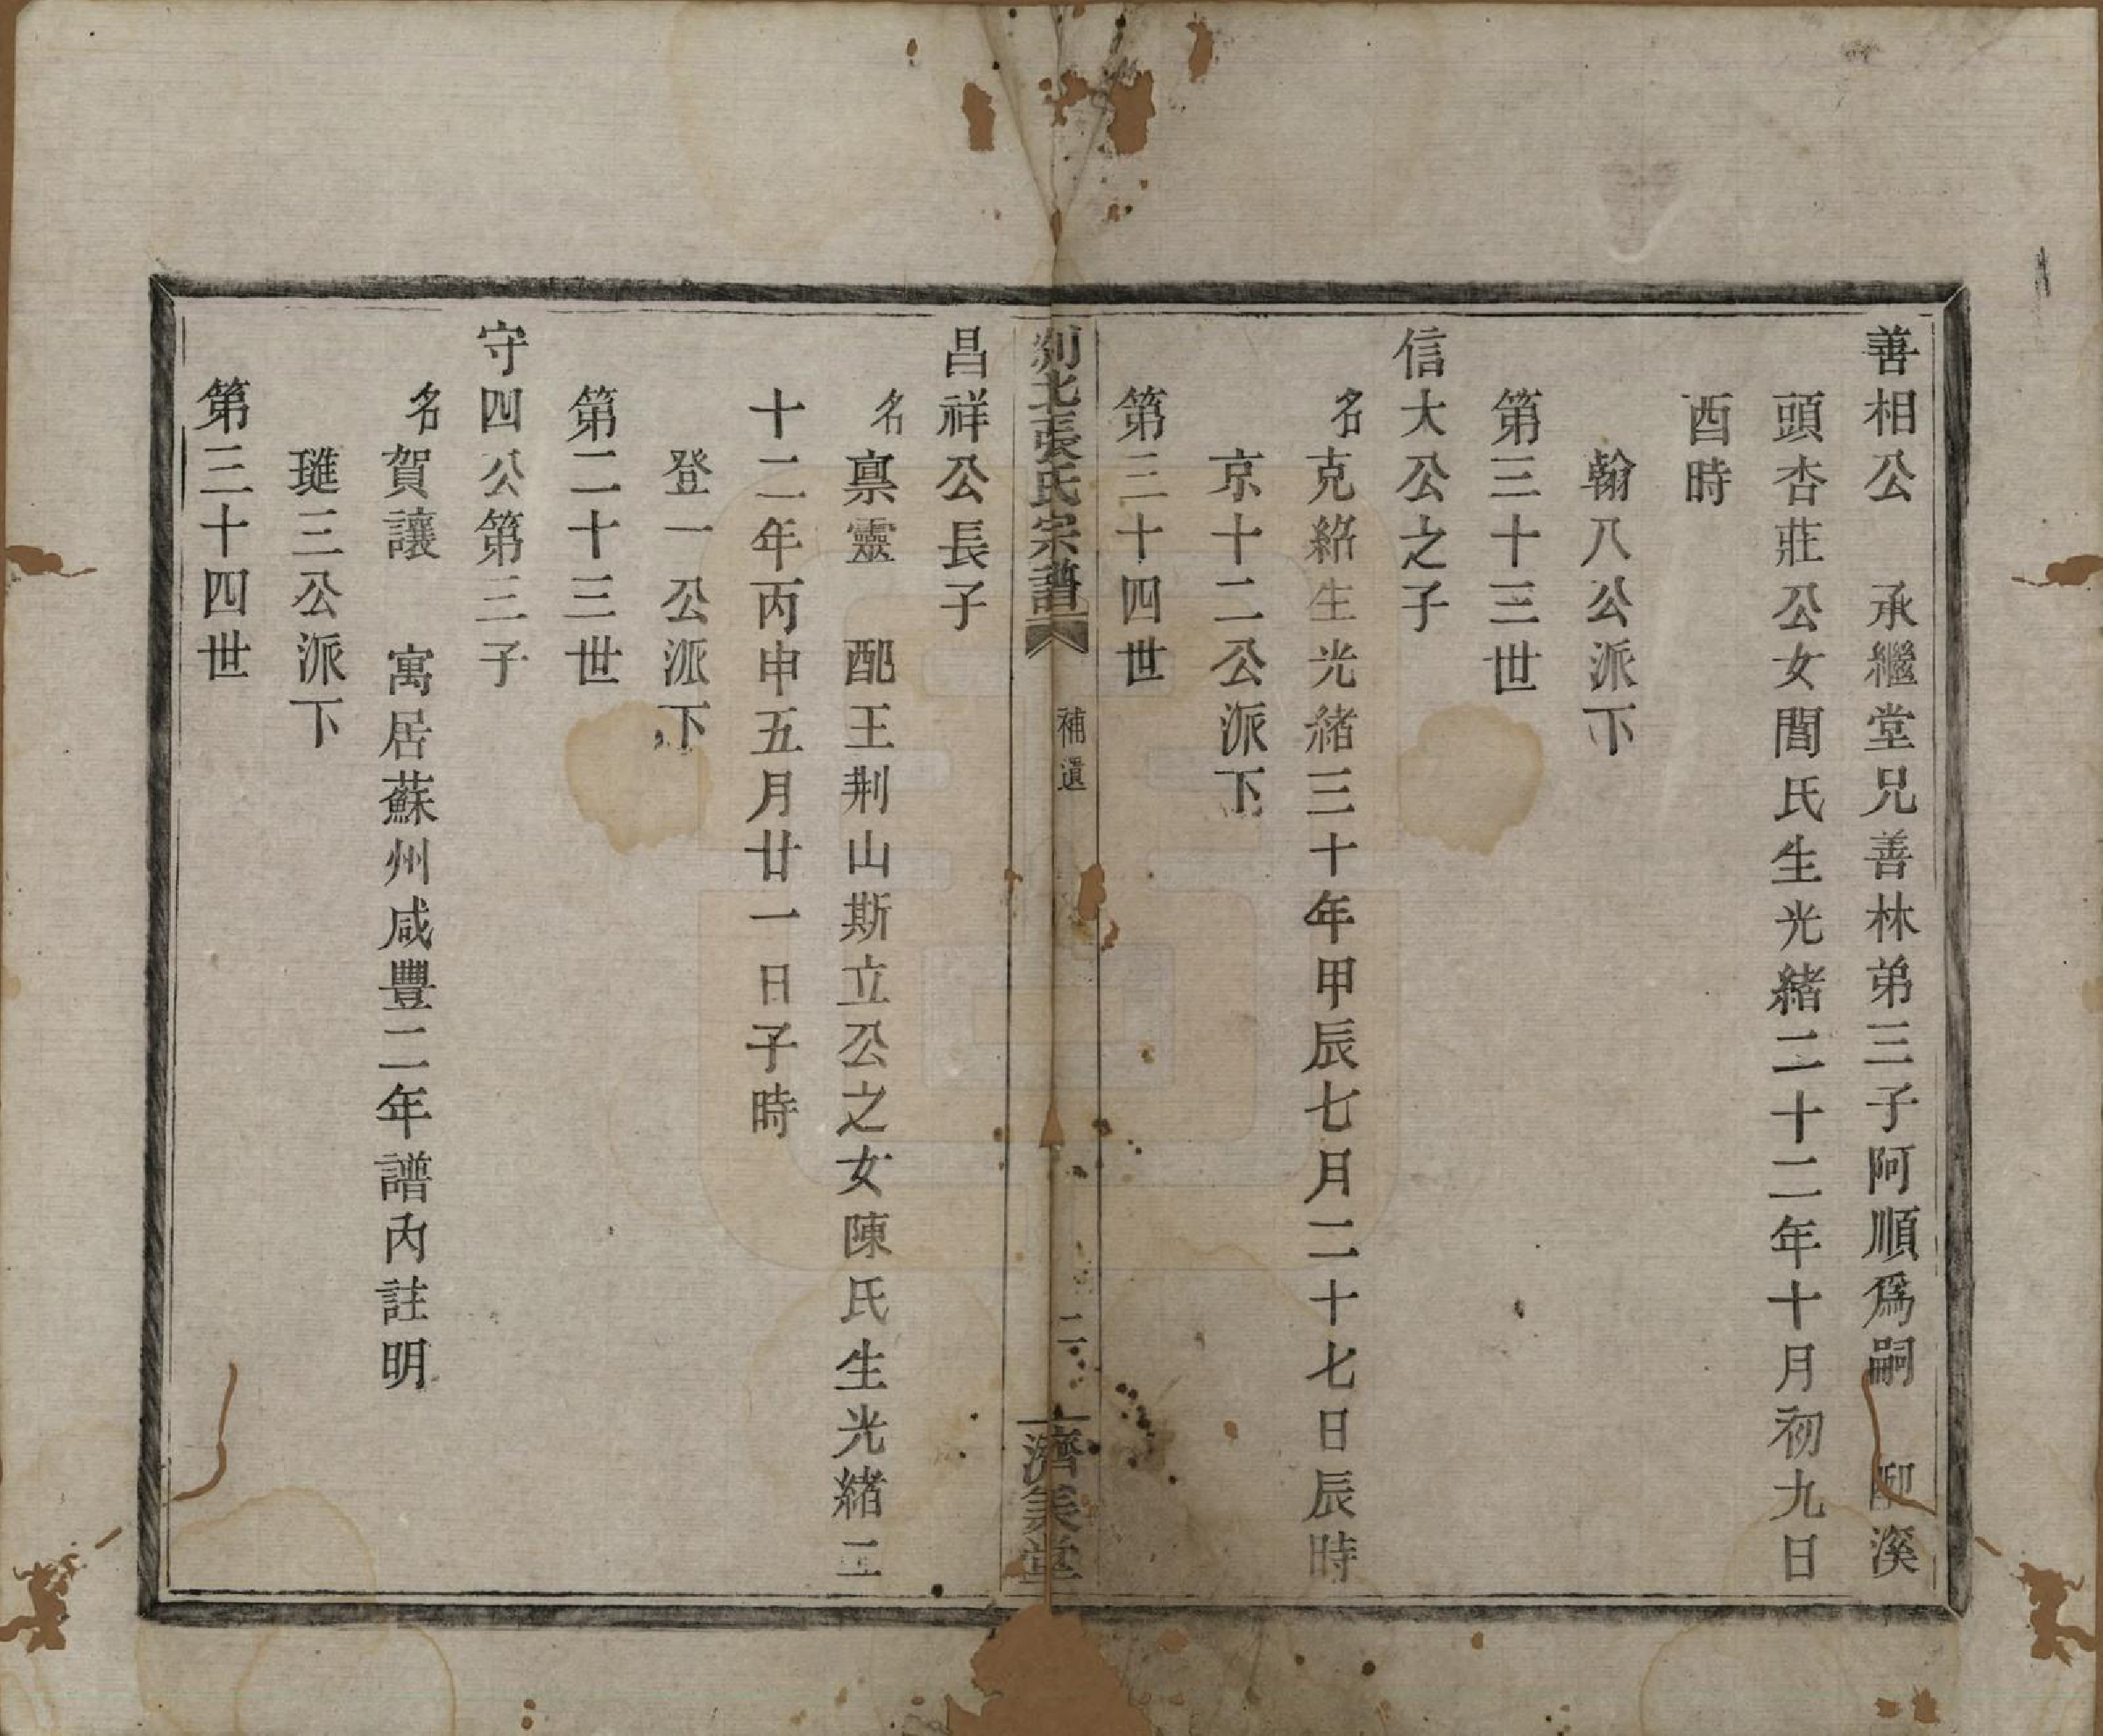 善相公　承繼堂兄善林弟三子阿順爲嗣　配溪
頭杏莊公女閭氏生光緒二十二年十月初九日
酉時
翰八公派下
第三十三世
信大公之子
名克紹生光緒三十年甲辰七月二十七日辰時
京十二公派下
第三十四世
剡北張氏宗譜　補遺　二　濟美堂
昌祥公長子
名禀靈　配王荆山斯立公之女陳氏生光緒二
十二年丙申五月廿一日子時
登一公派下
第二十三世
守四公第三子
名賀讓　寓居蘇州咸豐二年譜內註明
璡三公派下
第三十四世